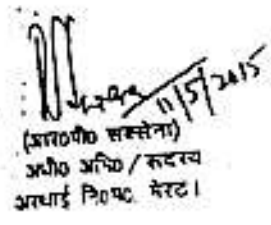 11/5/2015
(आर०पी० सक्सेना)
अधी० अभि० / सदस्य
अस्थाई नि०स० मेरठ।